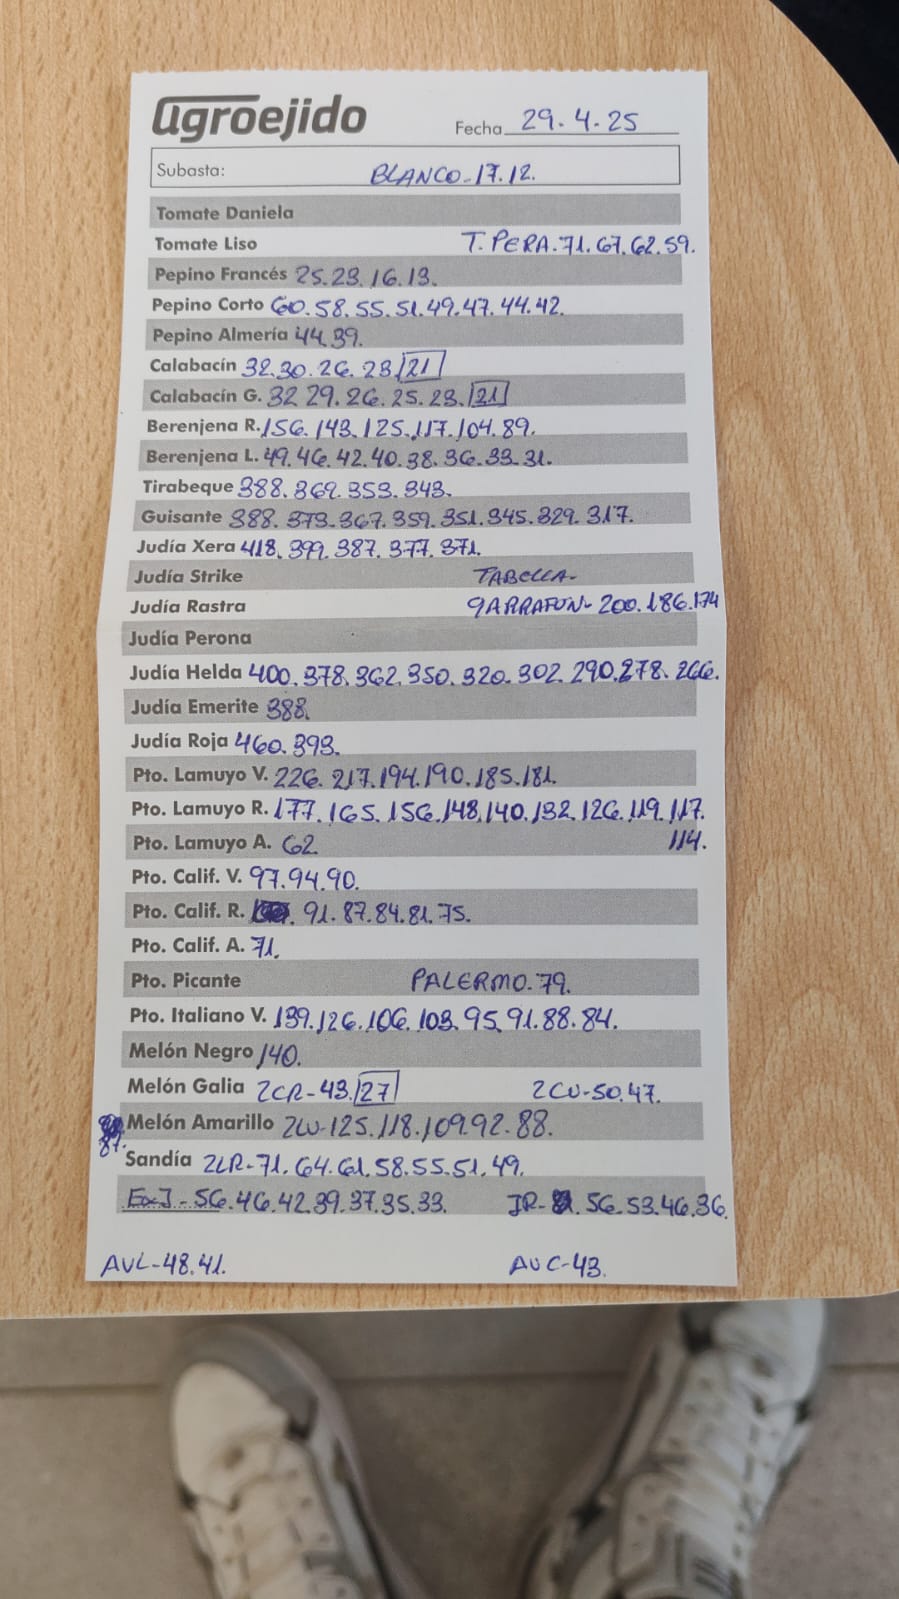 agroejido
Fecha 29.4.25
Subasta: BLANCO-17.12.
Tomate Daniela
Tomate Liso T. PERA.71.67.62.59.
Pepino Francés 25.23.16.13.
Pepino Corto 60.58.55.51.49.47.44.42.
Pepino Almería 44.39.
Calabacín 32.30.26.23/21
Calabacín G. 32 29.26.25.23.21
Berenjena R. 156.143.125.117.104.89.
Berenjena L. 49.46.42.40.38.36.33.31.
Tirabeque 388.369.353.343.
Guisante 388.373.367.359.351.345.329.317.
Judía Xera 418.399.387.377.371.
Judía Strike TABELLA-
Judía Rastra GARRAFON-200.186.174
Judía Perona
Judía Helda 400.378.362.350.320.302.290.278.266.
Judía Emerite 388.
Judía Roja 460.393.
Pto. Lamuyo V. 226.217.194.190.185.181.
Pto. Lamuyo R. 177.165.156.148.140.132.126.119.117.
Pto. Lamuyo A. 62. 114.
Pto. Calif. V. 97.94.90.
Pto. Calif. R. 91.87.84.81.75.
Pto. Calif. A. 71.
Pto. Picante PALERMO.79.
Pto. Italiano V. 139.126.106.103.95.91.88.84.
Melón Negro 140.
Melón Galia 2CR-43.27 2CU-50.47.
Melón Amarillo 2LV-125.118.109.92.88.
87.
Sandía 2LR-71.64.61.58.55.51.49.
ExJ-56.46.42.39.37.35.33. JR-56.53.46.36.
AVL-48.41. AVC-43.